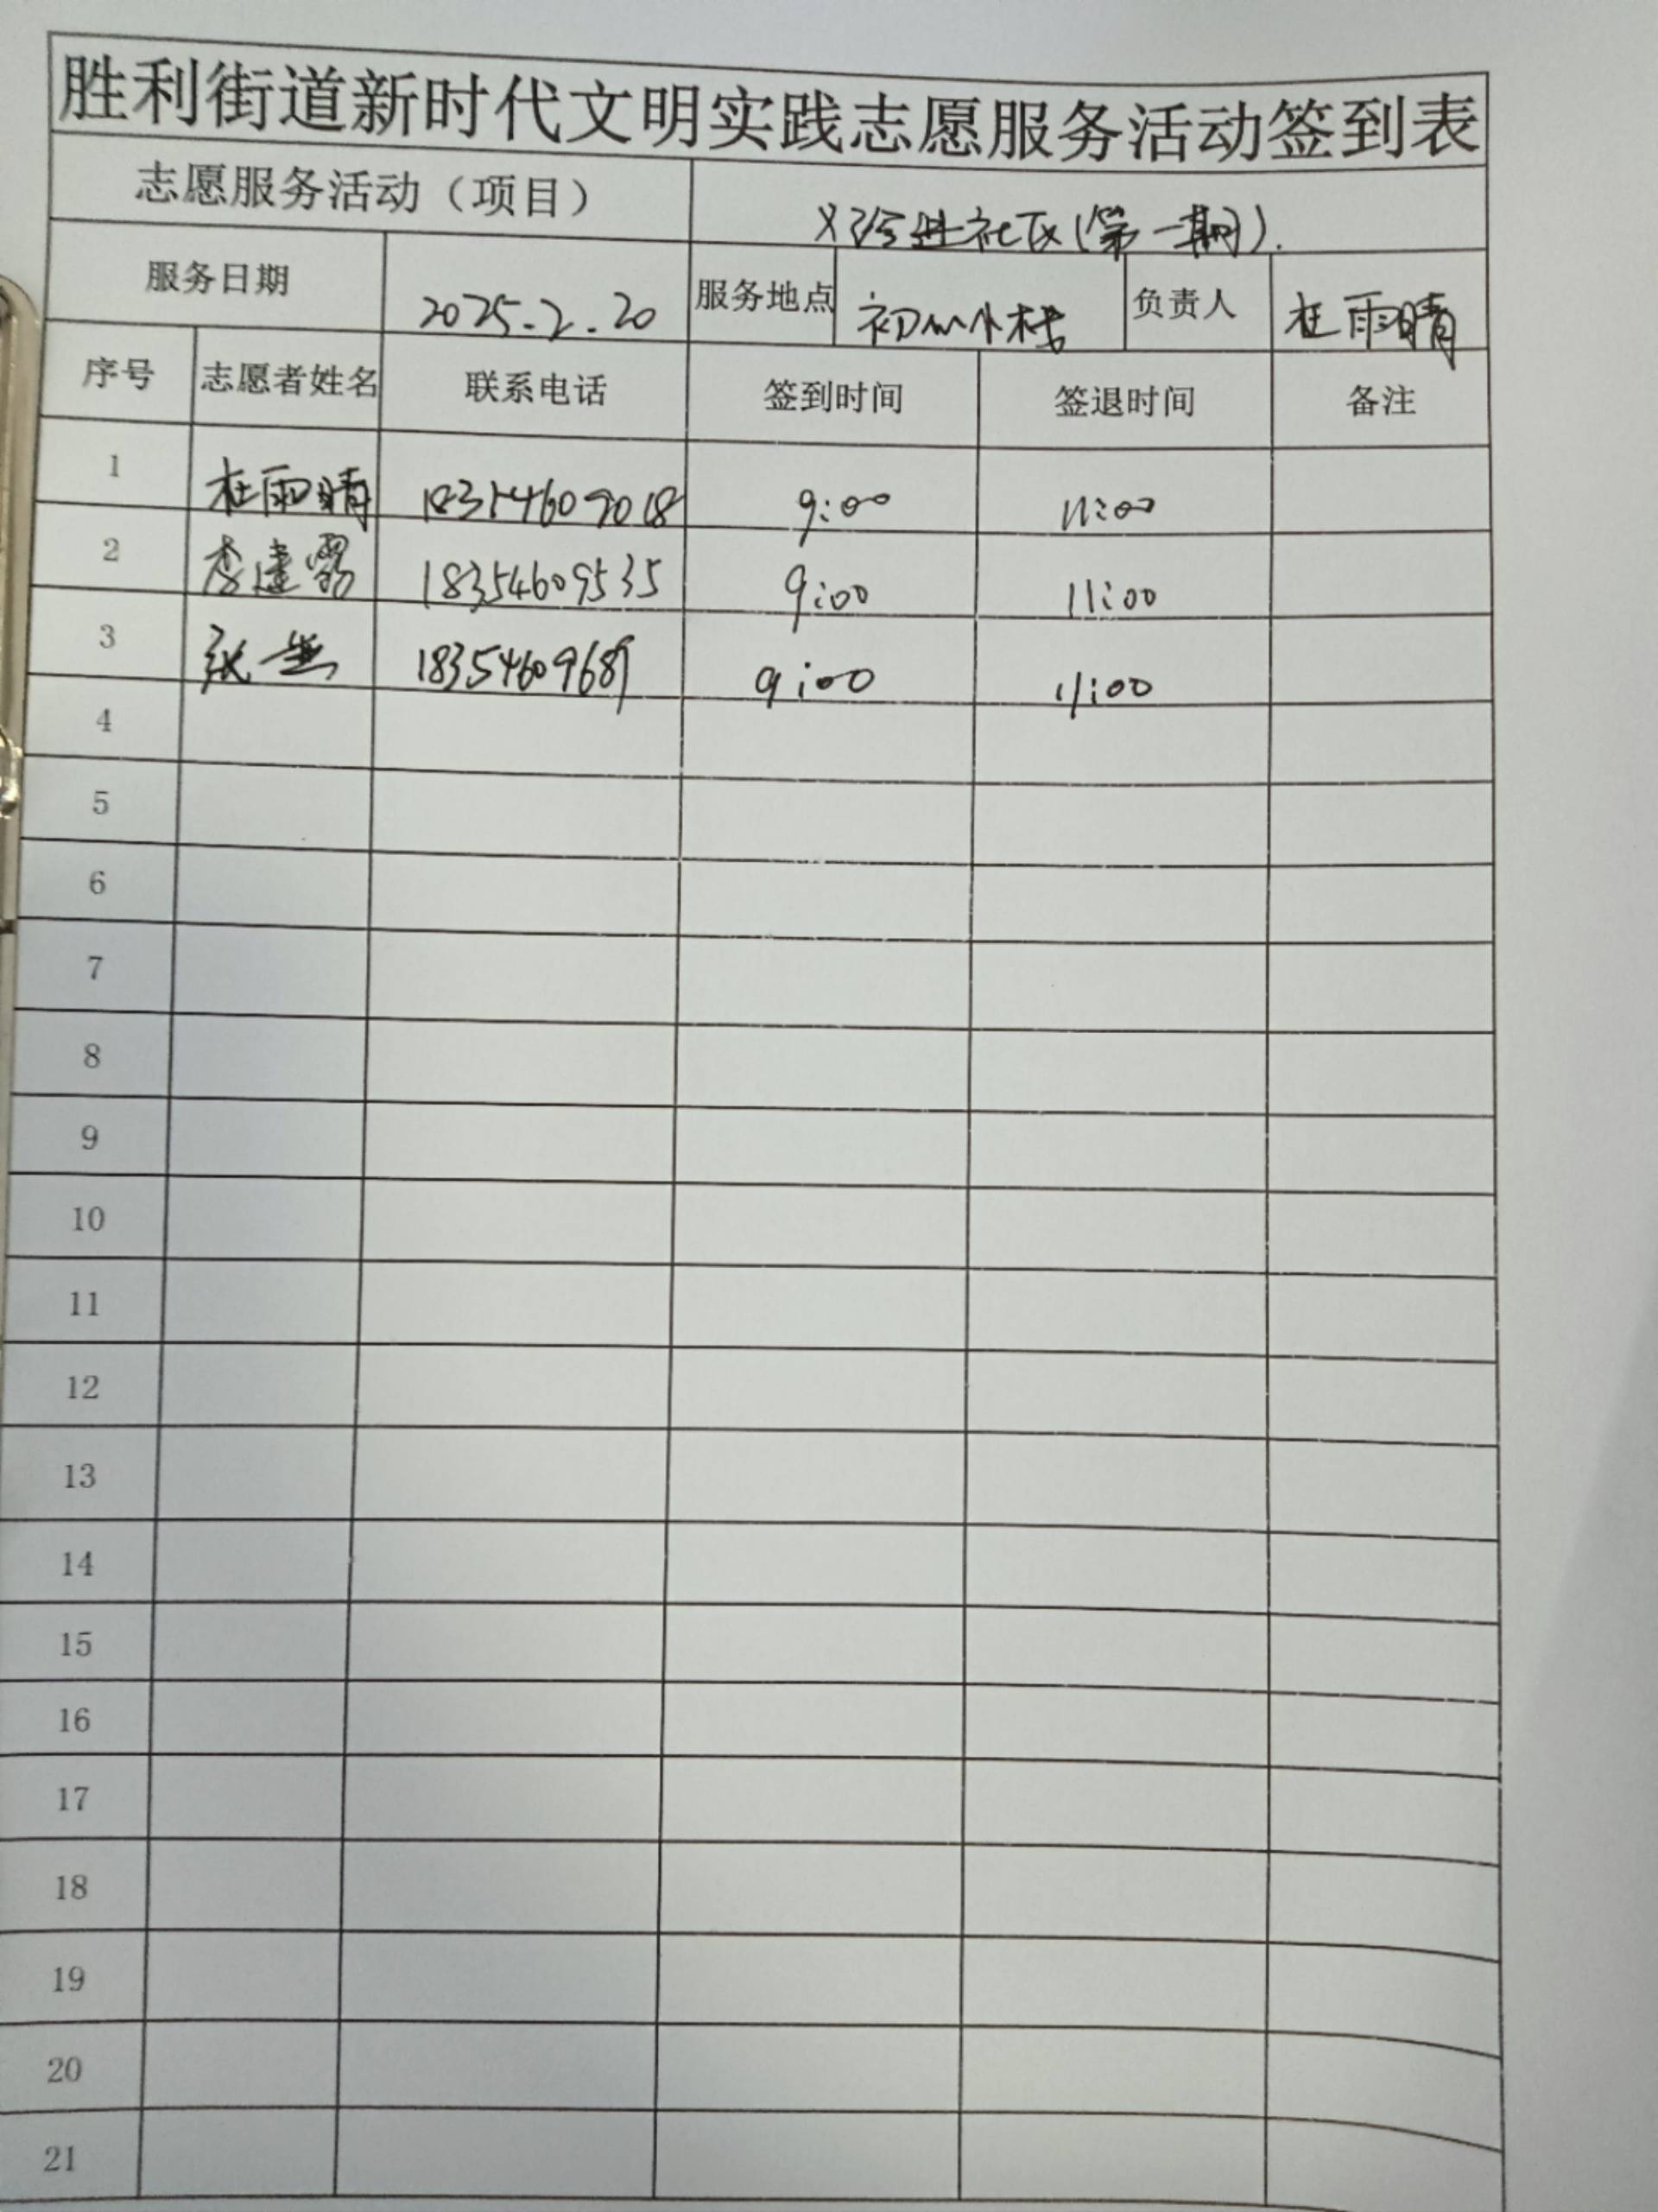 胜利街道新时代文明实践志愿服务活动签到表
志愿服务活动（项目） 进社区(第一期).
服务日期 2025.2.20 服务地点 初心小栈 负责人 杜雨晴
序号 志愿者姓名 联系电话 签到时间 签退时间 备注
1 杜雨晴 18354609018 9:00 11:00
2 李建 18354609535 9:00 11:00
3 张 18354609689 9:00 11:00
4
5
6
7
8
9
10
11
12
13
14
15
16
17
18
19
20
21